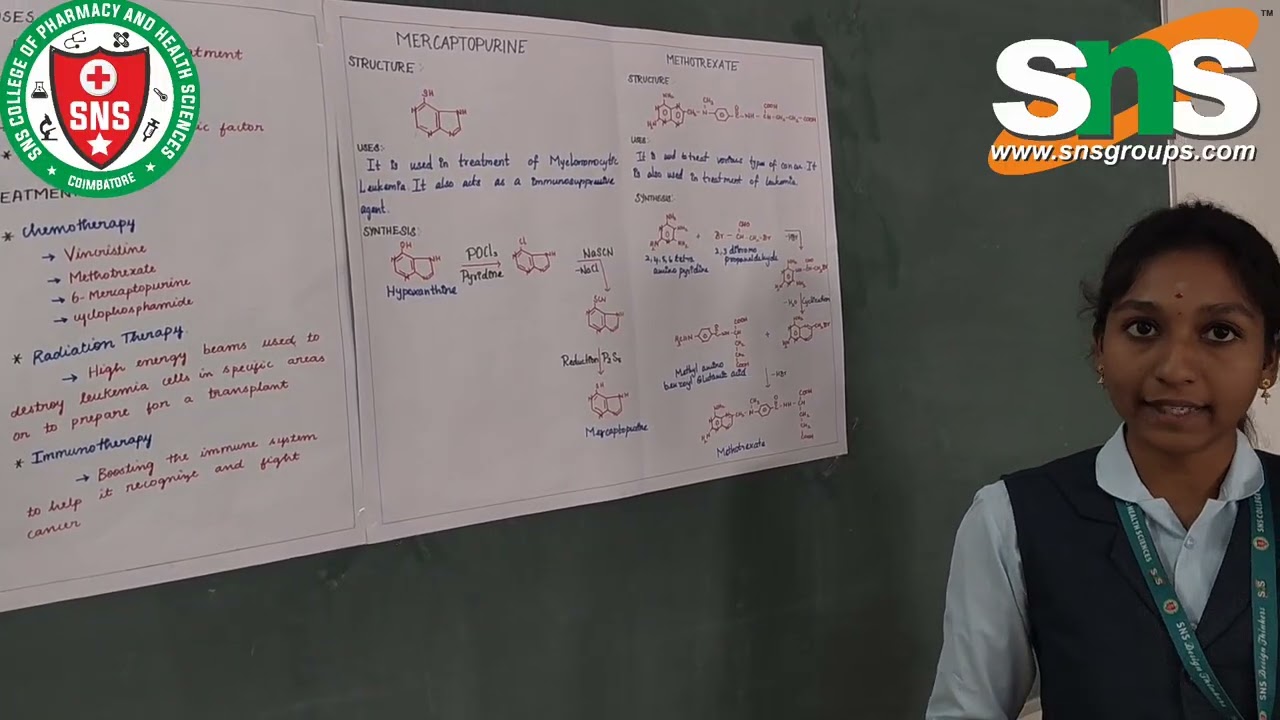 SNS COLLEGE OF PHARMACY AND HEALTH SCIENCES
SNS
COIMBATORE
sns
TM
www.snsgroups.com
tment
ic factor
* Chemotherapy
→ Vincristine
→ Methotrexate
→ 6-Mercaptopurine
→ cyclophosphamide
* Radiation Therapy
→ High energy beams used to
destroy leukemia cells in specific areas
or to prepare for a transplant
* Immunotherapy
→ Boosting the immune system
to help it recognize and fight
cancer
MERCAPTOPURINE
STRUCTURE:
SH
USES:
It is used in treatment of Myelomonocytic
Leukemia. It also acts as a immunosuppressive
agent.
SYNTHESIS:
OH
Hypoxanthine
POCl3
Pyridine
Cl
NaSCN
-NaCl
SCN
Reduction P2S5
SH
Mercaptopurine
METHOTREXATE
STRUCTURE
USES:
It is used to treat various types of cancer. It
is also used in treatment of leukemia.
SYNTHESIS:
2,4,5,6 tetra
amino pyridine
+
Br - CH - CH2-Br
CHO
2,3 dibromo
propanaldehyde
-HBr
Cyclization
+
Methyl amino
benzoyl Glutamic acid
-HBr
Methotrexate
HEALTH SCIENCES
SNS Design Thinkers
SNS COLLEGE
SNS Design Thinkers